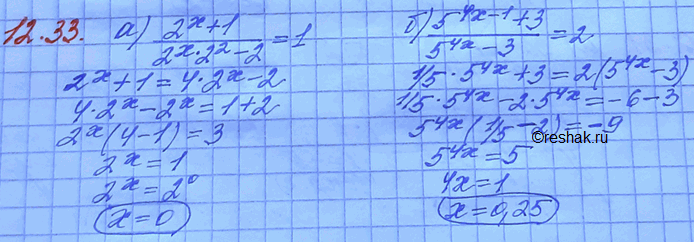 12.33. а) (2^x+1)/(2^x·2^2-2)=1
2^x+1=4·2^x-2
4·2^x-2^x=1+2
2^x(4-1)=3
2^x=1
2^x=2^0
x=0
б) (5^(4x-1)+3)/(5^(4x)-3)=2
1/5·5^(4x)+3=2(5^(4x)-3)
1/5·5^(4x)-2·5^(4x)=-6-3
5^(4x)(1/5-2)=-9
©reshak.ru
5^(4x)=5
4x=1
x=0,25